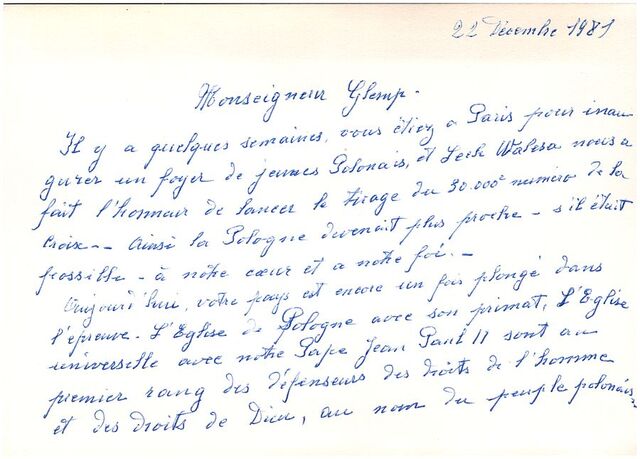 22 Décembre 1981
Monseigneur Glemp.
Il y a quelques semaines, vous étiez a Paris pour inau
gurer un foyer de jeunes Polonais, et Lech Walesa nous a
fait l'honneur de lancer le tirage du 30.000e numéro de la
Croix -- Ainsi la Pologne devenait plus proche - s'il était
possible - à nôtre cœur et a nôtre foi. -
Aujourd'hui, votre pays est encore un fois plongé dans
l'épreuve. L'Eglise de Pologne avec son primat, L'Eglise
universelle avec nôtre Pape Jean Paul II sont au
premier rang des défenseurs des droits de l'homme
et des droits de Dieu, au nom du peuple polonais.